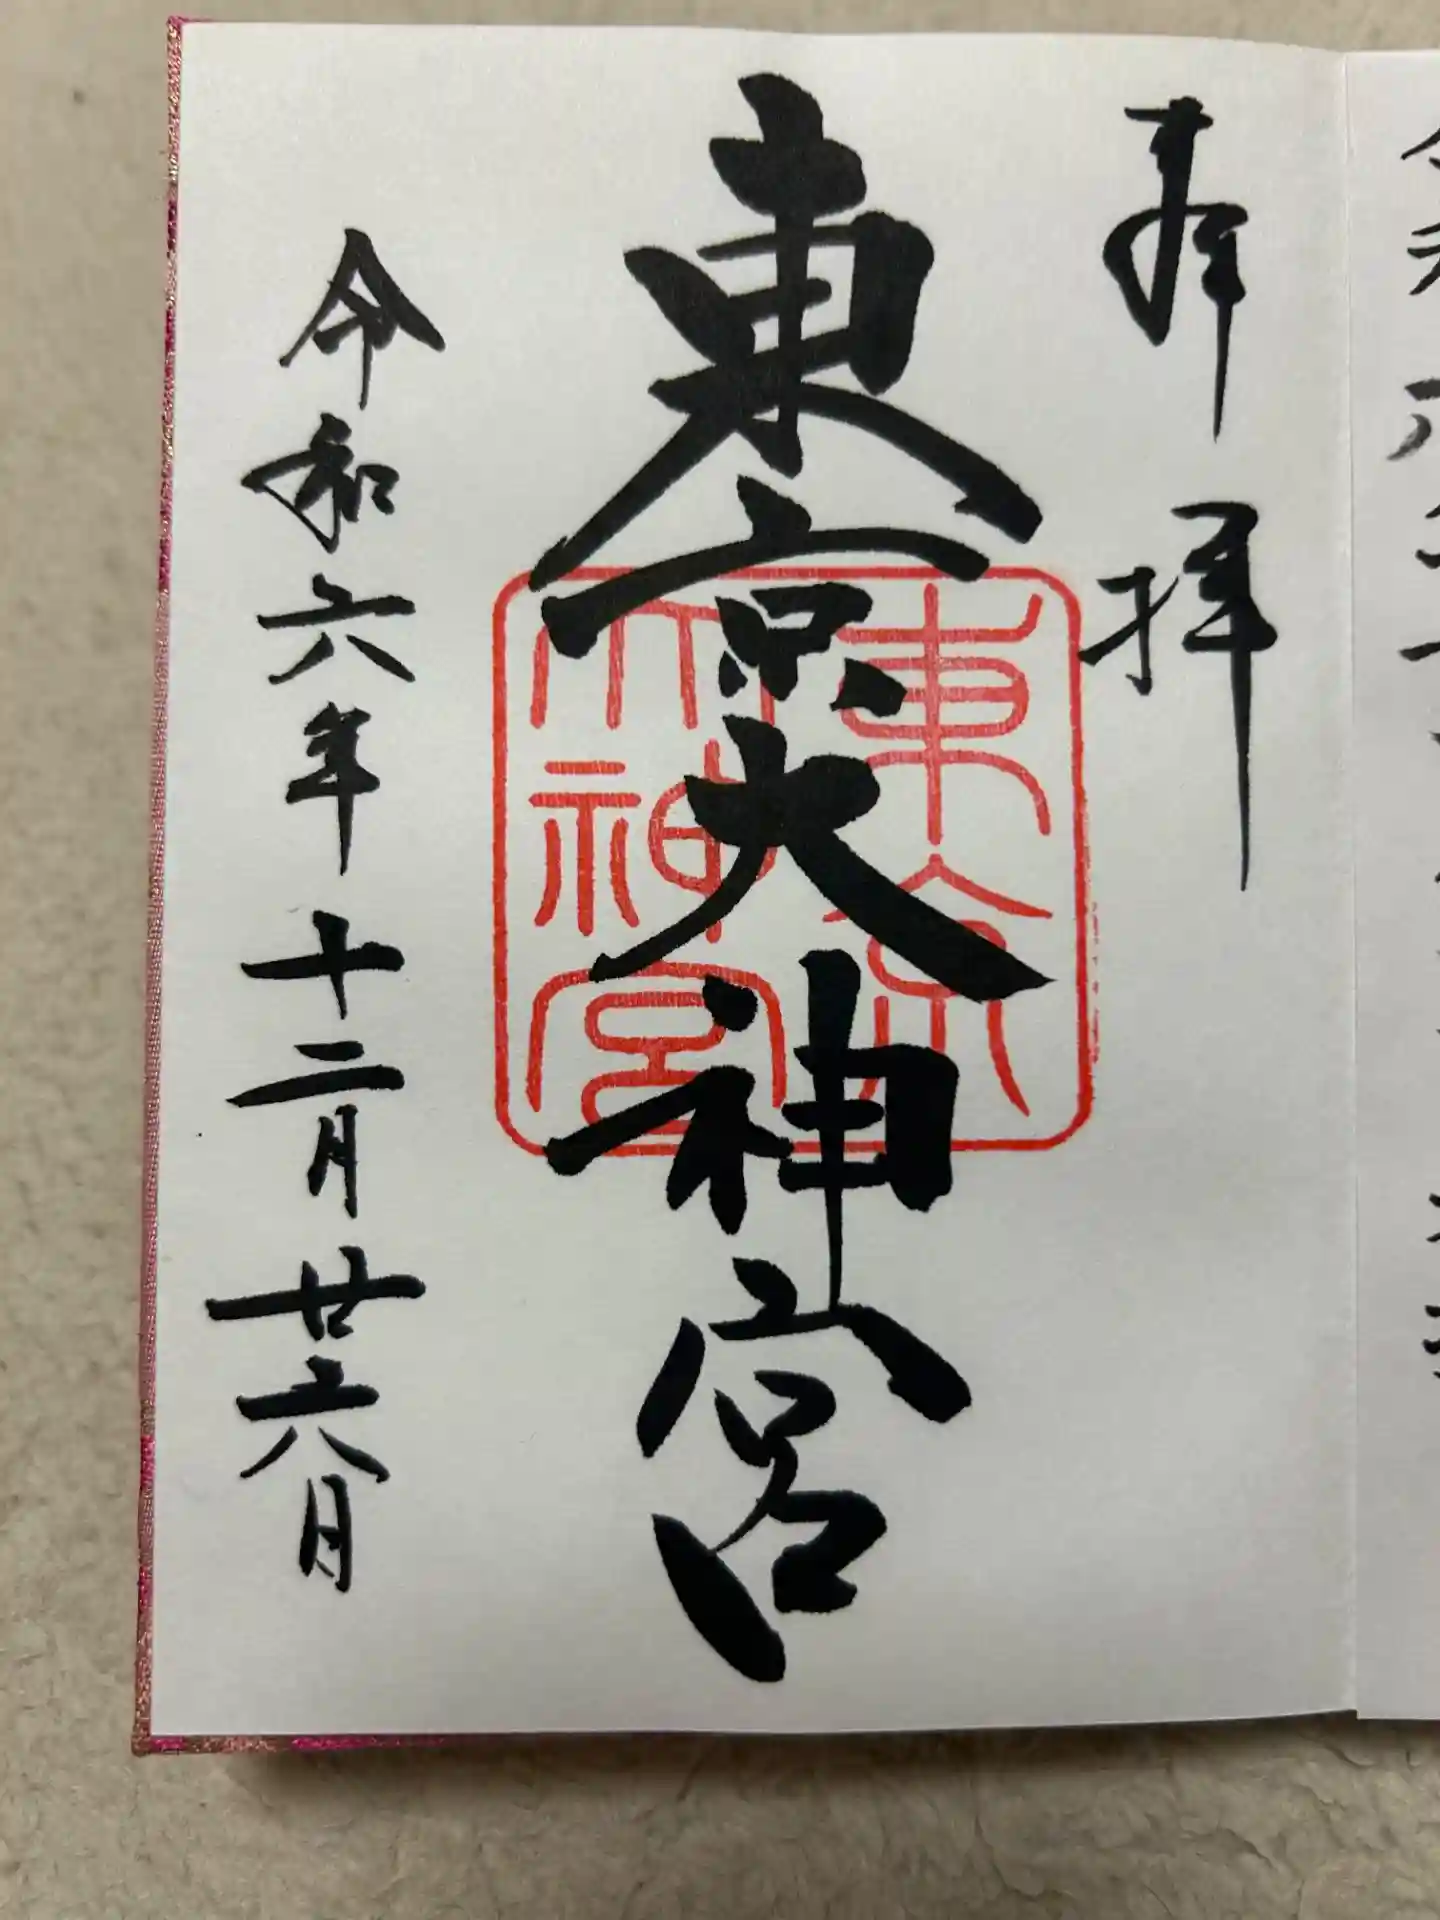 奉拝
東京大神宮
東京
大神宮
令和六年十二月廿六日